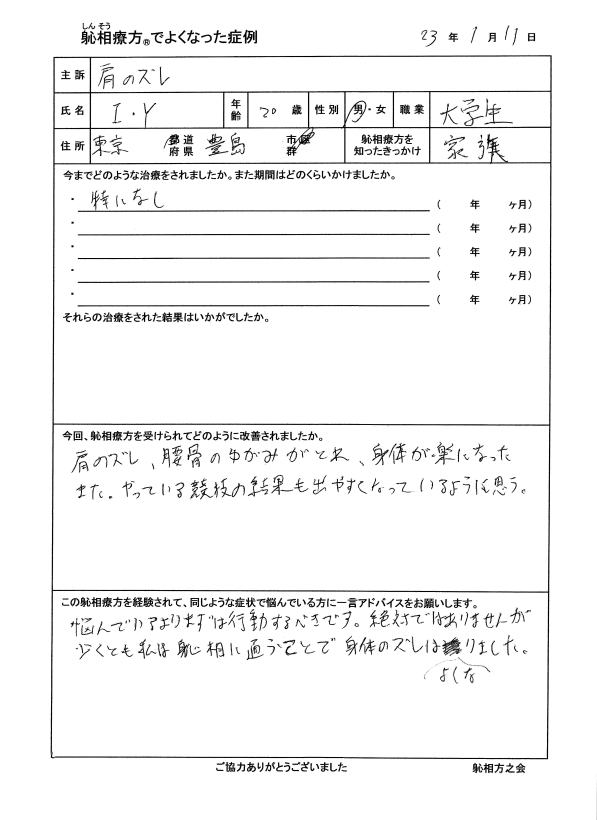 しん そう
躰相療方®でよくなった症例
23 年 1 月 11 日
主訴 肩のズレ
氏名 I・Y 年齢 20 歳 性別 男・女 職業 大学生
住所 東京 都道府県 豊島 市区群 躰相療方を知ったきっかけ 家族
今までどのような治療をされましたか。また期間はどのくらいかけましたか。
・ 特になし ( 年 ヶ月)
・ ( 年 ヶ月)
・ ( 年 ヶ月)
・ ( 年 ヶ月)
・ ( 年 ヶ月)
それらの治療をされた結果はいかがでしたか。
今回、躰相療方を受けられてどのように改善されましたか。
肩のズレ、腰骨のゆがみがとれ、身体が楽になった
また。やっている競技の結果も出やすくなっているように思う。
この躰相療方を経験されて、同じような症状で悩んでいる方に一言アドバイスをお願いします。
悩んでいるよりまずは行動するべきです。絶対ではありませんが
少くとも私は躰相に通うことで身体のズレはりました。
よくな
ご協力ありがとうございました
躰相方之会